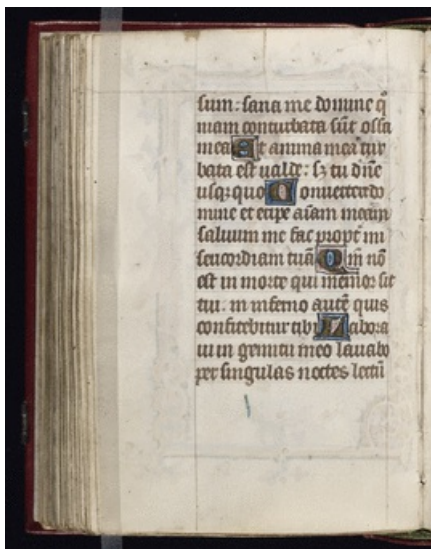 sum: sana me domine qm̄
niam conturbata sūt ossa
mea Et anima mea tur
bata est valde: sꝫ tu dn̄e
usqꝫ quo Convertere do
mine et eripe aīam meam
salvum me fac propt̄ mi
sericordiam tuā Qm̄ nō
est in morte qui memor sit
tui. in inferno autē quis
confitebitur tibi Labora
vi in gemitu meo lavabo
per singulas noctes lectū